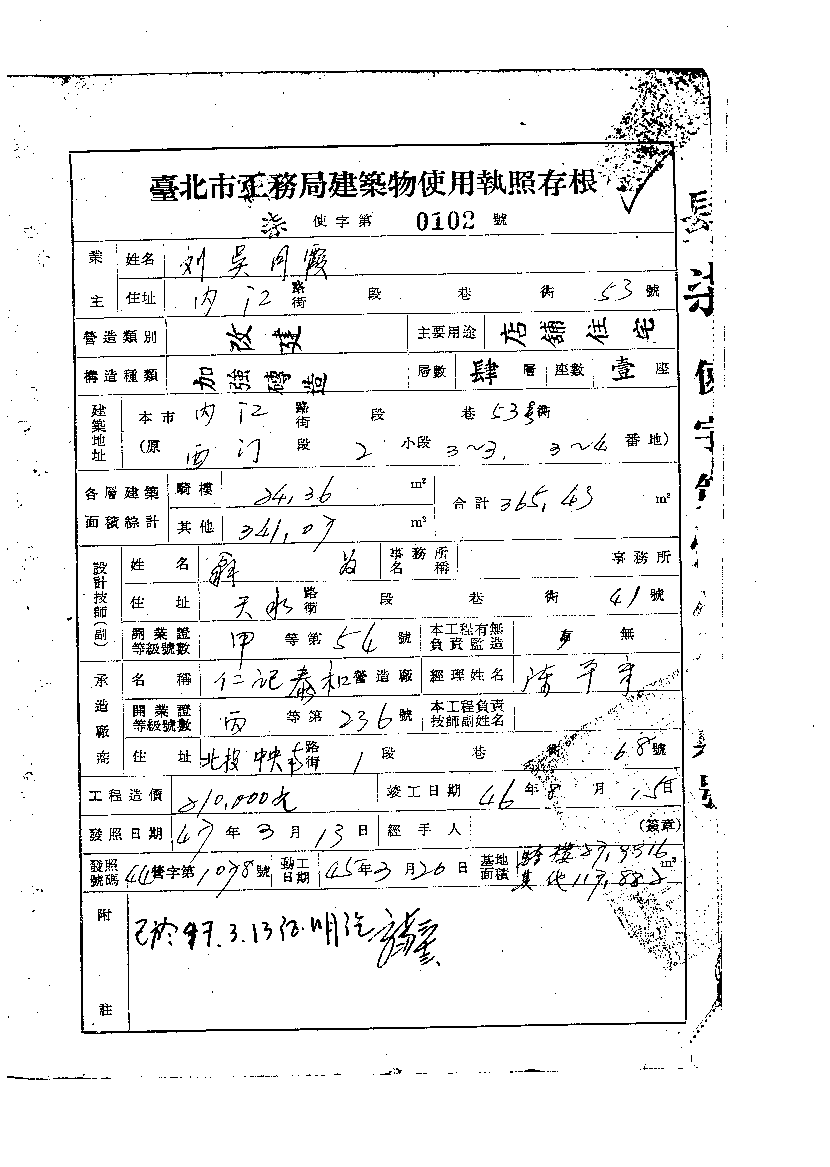 臺北市工務局建築物使用執照存根
柒 使字第 0102 號
業主 姓名 刘吳月霞
住址 內江 路街 段 巷 街 53 號
營造類別 改建 主要用途 店舖住宅
構造種類 加強磚造 層數 肆 層 座數 壹 座
建築地址 本市 內江 路街 段 巷 53號 街
(原 西门 段 2 小段 3~3, 3~4 番地)
各層建築面積綜計 騎樓 24,36 m² 合計 365,43 m²
其他 341,07 m²
設計技師(副) 姓名 事務所名稱 事務所
住址 天水 路街 段 巷 街 41 號
開業證等級號數 甲 等第 54 號 本工程有無負責監造 有 無
承造廠商 名稱 仁記泰和 營造廠 經理姓名 陳
開業證等級號數 丙 等第 236 號 本工程負責技師副姓名
住址 北投中央南 路街 1 段 巷 街 68 號
工程造價 210,000元 竣工日期 46 年 8 月 15 日
發照日期 47 年 3 月 13 日 經手人 (簽章)
發照號碼 44營字第 1078 號 動工日期 45年3月26日 基地面積 騎樓 27,9516 m²
其他 117,882
附註 已於47.3.13
肆柒使字第 號